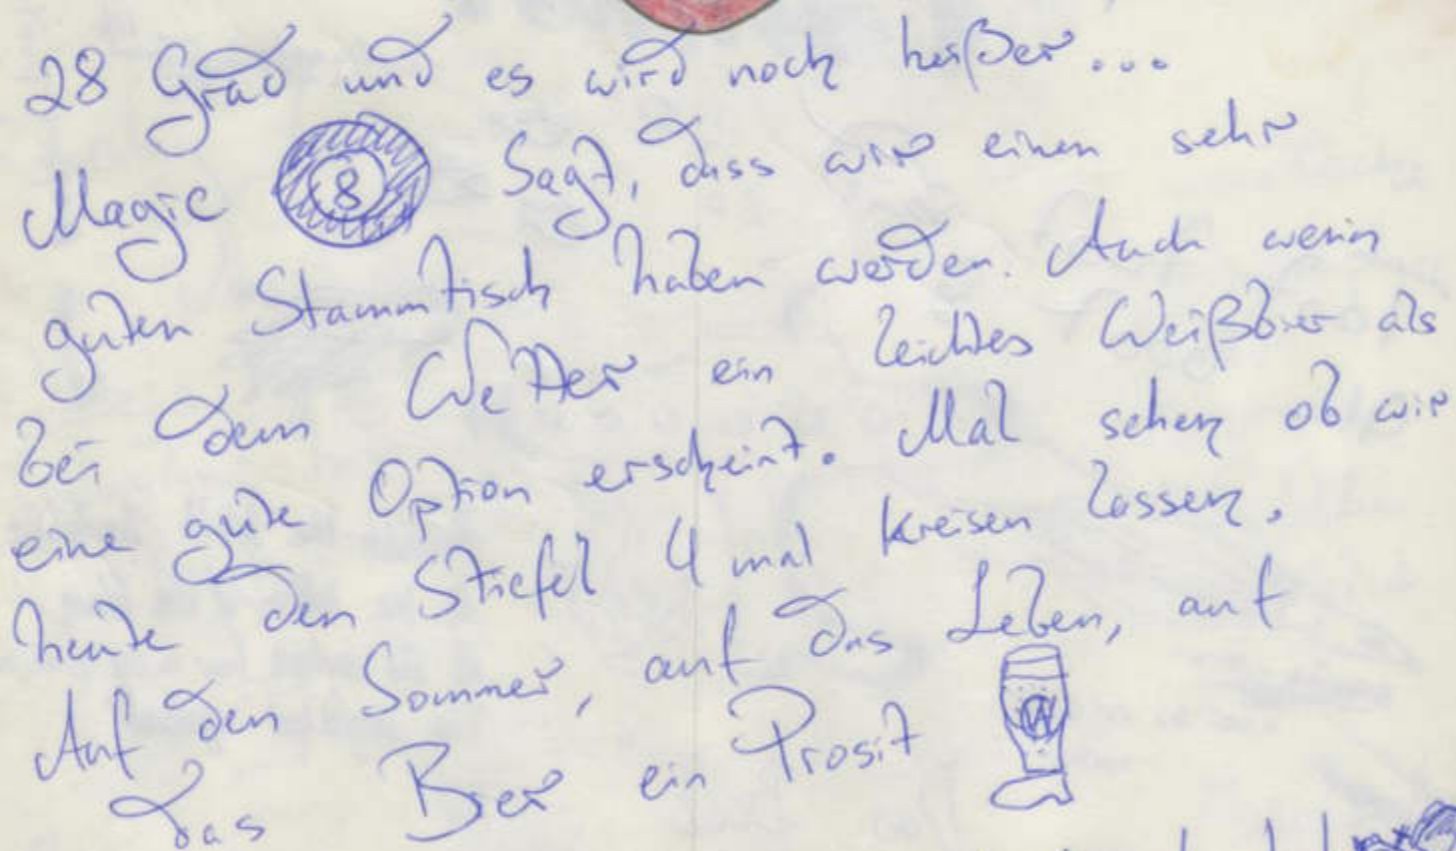 28 Grad und es wird noch heißer...
Magic 8 sagt, dass wir einen sehr
guten Stammtisch haben werden. Auch wenn
bei dem Wetter ein leichtes Weißbier als
eine gute Option erscheint. Mal sehen ob wir
heute den Stiefel 4 mal kreisen lassen.
Auf den Sommer, auf das Leben, auf
das Bier ein Prosit
W